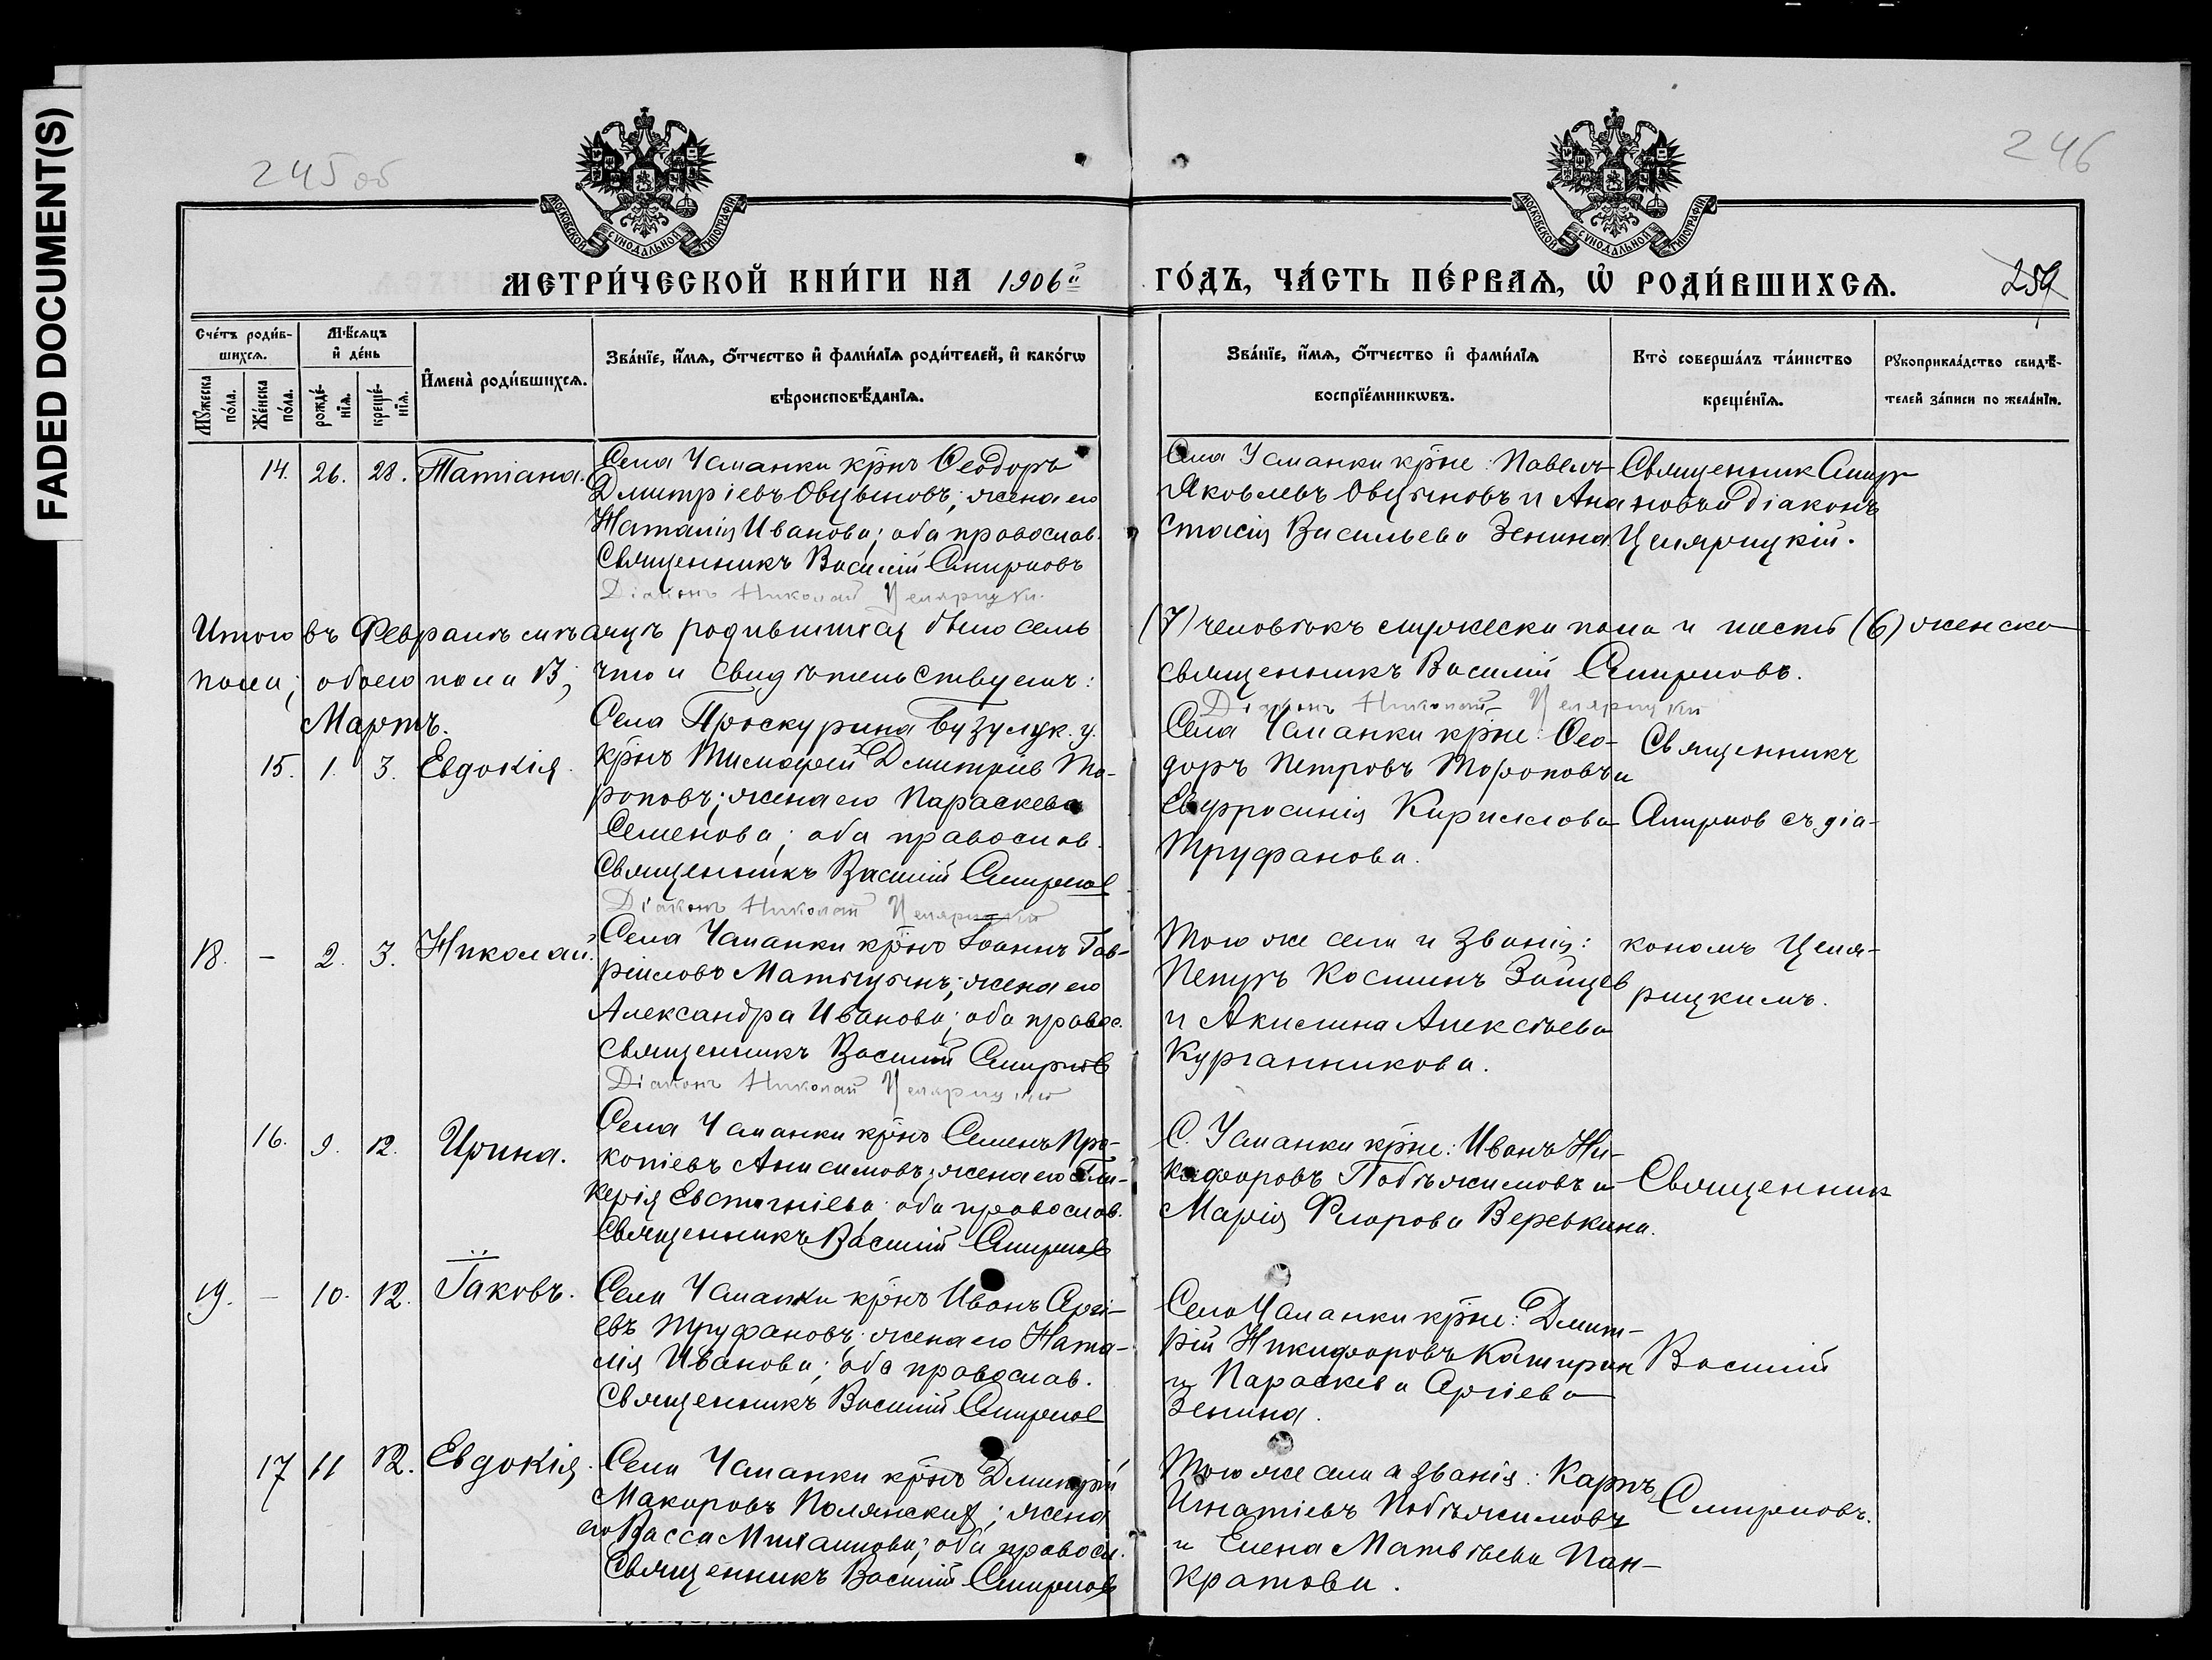 FADED DOCUMENT(S)
245 об
246
МОСКОВСКОЙ СѴНОДАЛЬНОЙ ТИПОГРАФІИ
МОСКОВСКОЙ СѴНОДАЛЬНОЙ ТИПОГРАФІИ
МЕТРИ́ЧЕСКОЙ КНИ́ГИ НА 1906й
ГО́ДЪ, ЧА́СТЬ ПЕ́РВАѦ, Ѡ҆ РОДИ́ВШИХСѦ.
259
Сче́тъ роди́в-
шихсѧ.
Мꙋ́жеска
по́ла.
Же́нска
по́ла.
Мѣ́сѧцъ
и҆ де́нь
рожде́-
нїѧ.
креще́-
нїѧ.
И҆мена̀ роди́вшихсѧ.
Зва́нїе, и҆́мѧ, ѻ҆́тчество и҆ фами́лїѧ роди́телей, и҆ како́гѡ
вѣроисповѣ́данїѧ.
Зва́нїе, и҆́мѧ, ѻ҆́тчество и҆ фами́лїѧ
воспрїе́мникѡвъ.
Кто̀ соверша́лъ та́инство
креще́нїѧ.
Рꙋкоприкла́дство свидѣ́-
телей за́писи по жела́нїю.
14. 26. 28. Татіана.
Села Чаманки крнъ Ѳеодоръ
Дмитріевъ Овцыновъ; жена его
Наталія Иванова; оба православ.
Священникъ Василій Смирновъ
Діаконъ Николай Целярицкій
Села Чаманки крне: Павелъ
Яковлевъ Овцыновъ и Ана
стасія Васильева Зенина
Священник Смир
новъ и Діаконъ
Целярицкій.
Итого въ Февралѣ мѣсяцѣ родившихся было семь (7) человѣкъ мужеска пола и шесть (6) женска
пола; обоего пола 13, что и свидѣтельствуемъ: Священникъ Василій Смирновъ.
Діаконъ Николай Целярицкій
Мартъ.
15. 1. 3. Евдокія.
Села Проскурина Бузулук. у.
крнъ Тимофей Дмитріев То-
роповъ; жена его Параскева
Семенова; оба православ.
Священникъ Василій Смирнов
Діаконъ Николай Целярицкій
Села Чаманки крне: Ѳео-
доръ Петровъ Тороповъ и
Евфросинія Кириллова
Труфанова.
Священникъ
Смирнов съ діа-
18. - 2. 3. Николай.
Села Чаманки крнъ Іоаннъ Гав-
ріиловъ Матыцынъ; жена его
Александра Иванова; оба правос.
Священникъ Василій Смирнов
Діаконъ Николай Целярицкій
Того же села и званія:
Петръ Косминъ Зайцев
и Акилина Алексѣева
Курганникова.
кономъ Целя-
рицкимъ.
16. 9. 12. Ирина.
Села Чаманки крнъ Семенъ Про-
копіевъ Анисимовъ; жена его Гли-
керія Евстигніева оба православ.
Священникъ Василій Смирнов
С. Чаманки крне: Иванъ Ни-
кифоровъ Побѣжимовъ и
Марія Флорова Веревкина.
Священник
19. - 10. 12. Іаковъ.
Села Чаманки крнъ Иванъ Сергі-
евъ Труфановъ; жена его Ната-
лія Иванова; оба православ.
Священникъ Василій Смирнов
Села Чаманки крне: Дмит-
рій Никифоровъ Каширин
и Параскева Сергіева
Зенина.
Василій
17 11 12. Евдокія.
Села Чаманки крнъ Дмитрій
Макаровъ Полянскій; жена
его Васса Михаилова; оба правосл.
Священникъ Василій Смирнов
Того же села и званія: Карпъ
Игнатіевъ Побѣжимовъ
и Елена Матвѣева Пан-
кратова.
Смирновъ.